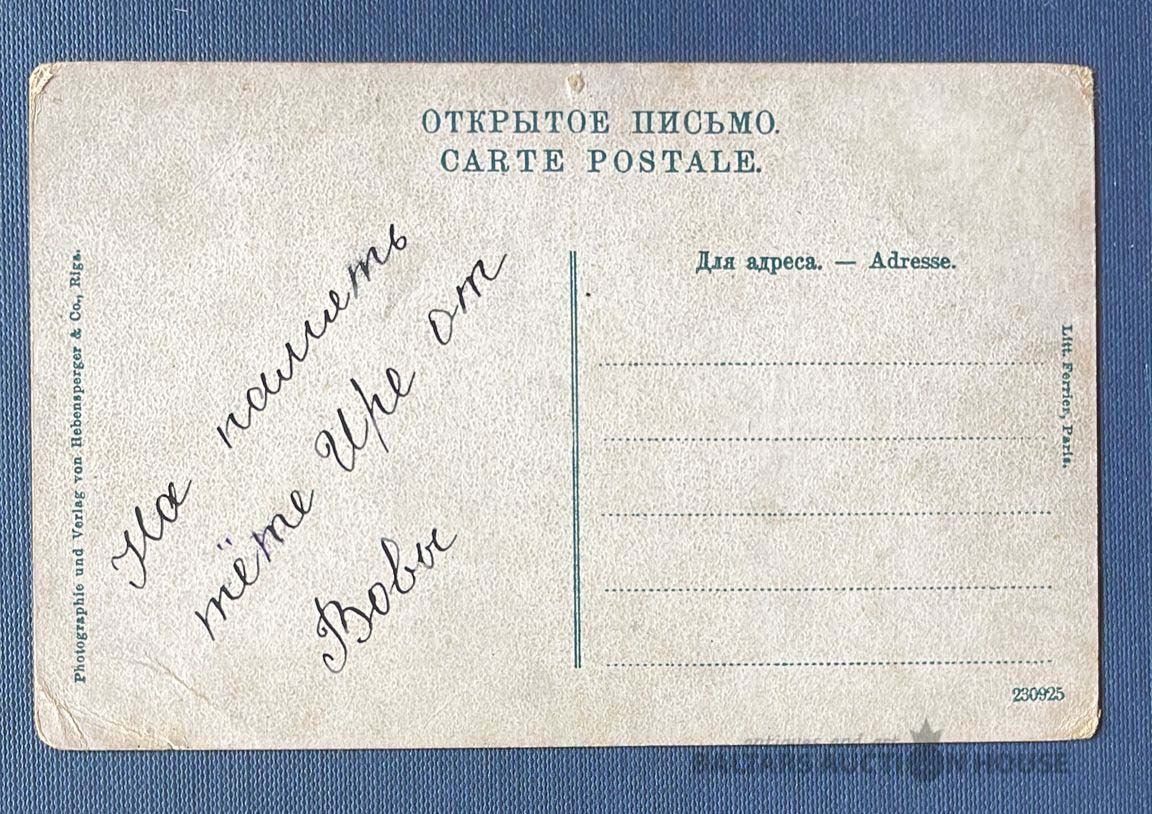 ОТКРЫТОЕ ПИСЬМО.
CARTE POSTALE.
Photographie und Verlag von Hebensperger & Co., Riga.
На память
тёте Ире от
Вовы
Для адреса. — Adresse.
Litt. Ferrier, Paris.
230925
antiques and art
BALTARS AUCTION HOUSE